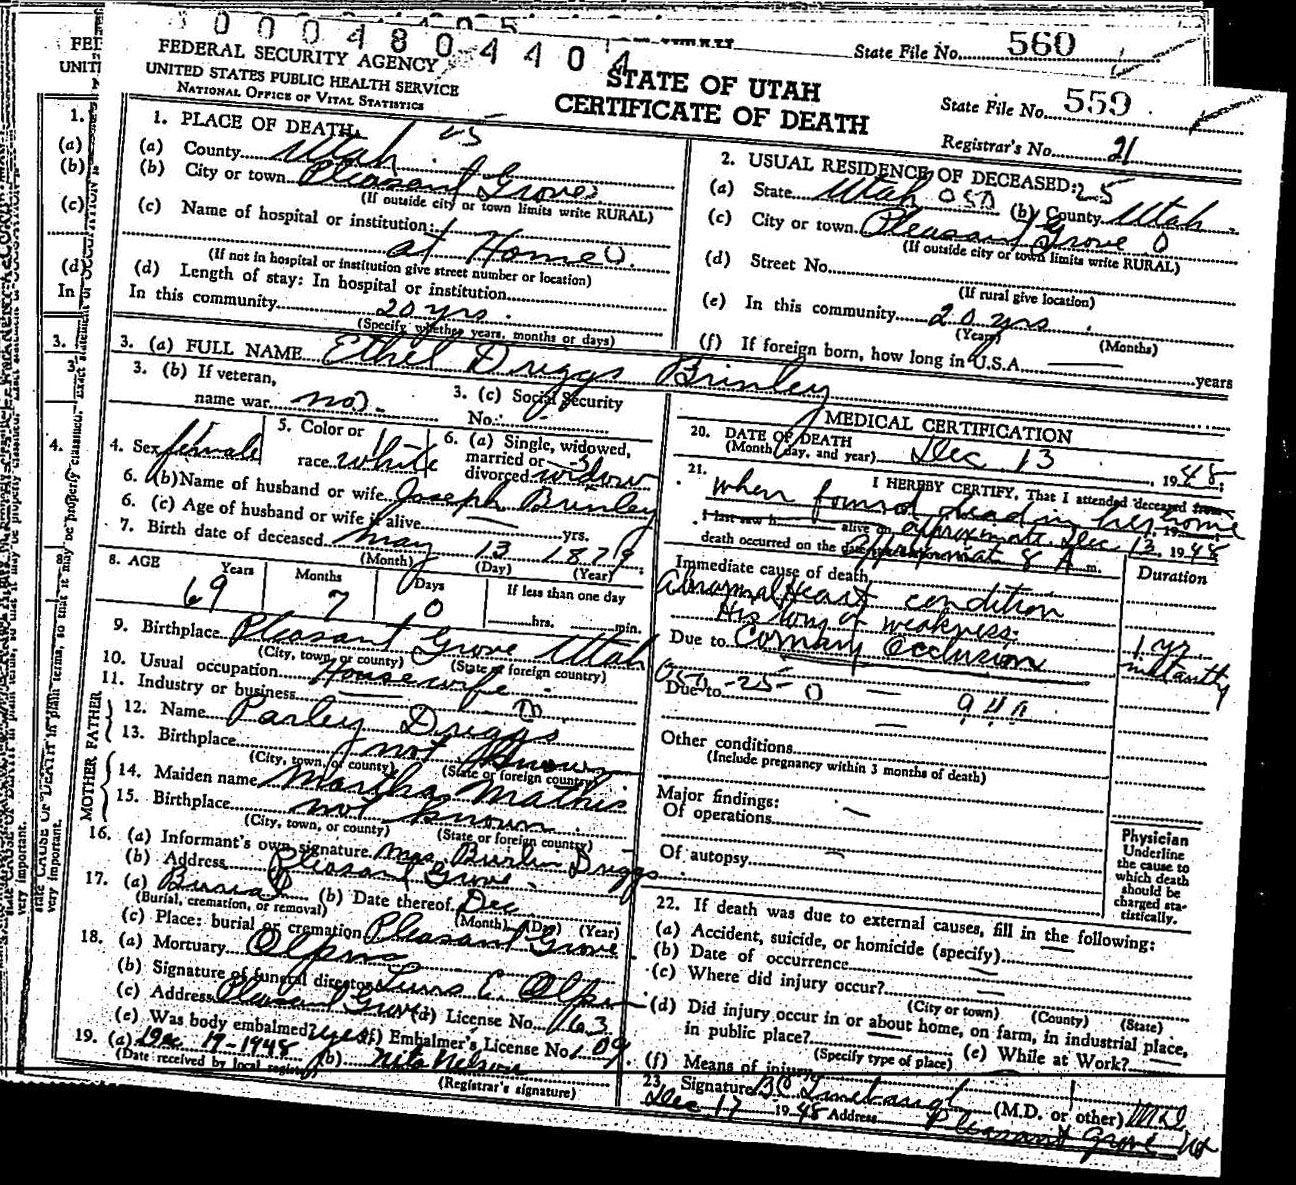 0004804404
State File No. 560
FEDERAL SECURITY AGENCY
UNITED STATES PUBLIC HEALTH SERVICE
NATIONAL OFFICE OF VITAL STATISTICS
STATE OF UTAH
CERTIFICATE OF DEATH
State File No. 559
Registrar's No. 21
1. PLACE OF DEATH: 25
(a) County Utah
(b) City or town Pleasant Grove
(If outside city or town limits write RURAL)
(c) Name of hospital or institution:
at Home
(If not in hospital or institution give street number or location)
(d) Length of stay: In hospital or institution
In this community 20 yrs.
(Specify whether years, months or days)
2. USUAL RESIDENCE OF DECEASED: 25
(a) State Utah (b) County Utah
(c) City or town Pleasant Grove 0
(If outside city or town limits write RURAL)
(d) Street No.
(If rural give location)
(e) In this community 20 yrs.
(Years) (Months)
(f) If foreign born, how long in U.S.A. years
3. (a) FULL NAME Ethel Driggs Brinley
3. (b) If veteran,
name war no.
3. (c) Social Security
No.
4. Sex female
5. Color or
race white
6. (a) Single, widowed,
married or
divorced widow
6. (b) Name of husband or wife Joseph Brinley
6. (c) Age of husband or wife if alive yrs.
7. Birth date of deceased May 13 1879
(Month) (Day) (Year)
8. AGE Years Months Days If less than one day
69 7 0 hrs. min.
9. Birthplace Pleasant Grove Utah
(City, town, or county) (State or foreign country)
10. Usual occupation Housewife
11. Industry or business
FATHER
12. Name Parley Driggs
13. Birthplace not Known
(City, town, or county) (State or foreign country)
MOTHER
14. Maiden name Martha Mathis
15. Birthplace not known.
(City, town, or county) (State or foreign country)
16. (a) Informant's own signature Mrs. Driggs
(b) Address Pleasant Grove.
17. (a) Burial (b) Date thereof Dec
(Burial, cremation, or removal) (Month) (Day) (Year)
(c) Place: burial or cremation Pleasant Grove
18. (a) Mortuary Olpin
(b) Signature of funeral director E. Olpin
(c) Address Pleasant Grove (d) License No. 163
(e) Was body embalmed? yes (f) Embalmer's License No. 109
19. (a) Dec. 19-1948 (b) Nita Nelson
(Date received by local registrar) (Registrar's signature)
MEDICAL CERTIFICATION
20. DATE OF DEATH
(Month, day, and year) Dec 13 1948
21. I HEREBY CERTIFY, That I attended deceased from
when found dead in her home 19
I last saw h alive on approximate Dec 13, 1948
death occurred on the approximat 8 A m.
Immediate cause of death Duration
Abnormal Heart condition
History of weakness. 1 yr
Due to Coronary Occlusion instantly
Due to -25-0
Other conditions
(Include pregnancy within 3 months of death)
Major findings:
Of operations
Of autopsy
Physician
Underline
the cause to
which death
should be
charged sta-
tistically.
22. If death was due to external causes, fill in the following:
(a) Accident, suicide, or homicide (specify)
(b) Date of occurrence
(c) Where did injury occur?
(City or town) (County) (State)
(d) Did injury occur in or about home, on farm, in industrial place,
in public place?
(Specify type of place) (e) While at Work?
(f) Means of injury
23. Signature (M.D. or other) MD
Dec 17 1948 Address Pleasant Grove Ut